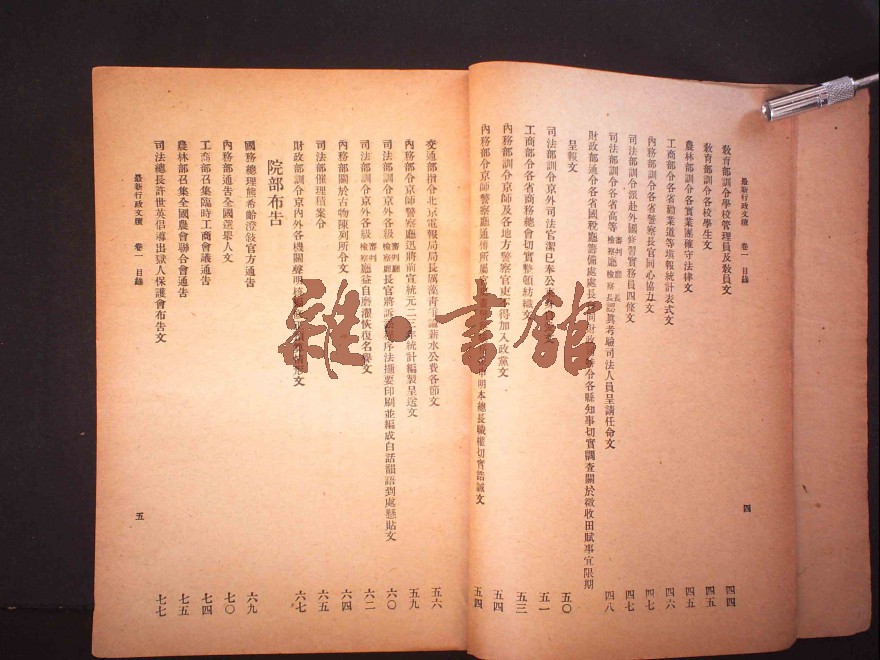 最新行政文牘 卷一 目錄
四
教育部訓令學校管理員及教員文 四四
教育部訓令各校學生文 四五
農林部訓令各實業團確守法律文 四六
工商部令各省勸業道等填報統計表式文 四七
內務部訓令各省警察長官同心協力文 四七
司法部訓令派赴外國修習實務員四條文
司法部訓令各省高等審判廳長檢察廳檢察長認眞考驗司法人員呈請任命文 四八
財政部通令各省國稅廳籌備處處長 同財政 令各縣知事切實調查關於徵收田賦事宜限期
呈報文 五〇
司法部訓令京外司法官潔己奉公 文 五一
工商部令各省商務總會切實整頓紡織文 五三
內務部訓令京師及各地方警察官吏不得加入政黨文 五四
內務部令京師警察廳通傳所屬官 申明本總長職權切實誥誡文 五四
交通部指令北京電報局局長厲 青 薪水公費各節文 五六
內務部令京師警察廳迅將前宣統元二三年統計編製呈送文 五九
司法部訓令京外各級審判廳檢察廳長官將訴 序法撮要印刷並編成白話韻語到處懸貼文 六〇
司法部訓令京外各級審判廳檢察廳益自磨濯恢復名譽文 六二
內務部關於古物陳列所令文 六四
司法部催理積案令 六五
財政部訓令京內外各機關聲明 文 六七
院部布告
國務總理熊希齡澄敍官方通告 六九
內務部通告全國選舉人文 七〇
工商部召集臨時工商會議通告 七四
農林部召集全國農會聯合會通告 七五
司法總長許世英倡導出獄人保護會布告文 七七
最新行政文牘 卷一 目錄
五
雜·書館